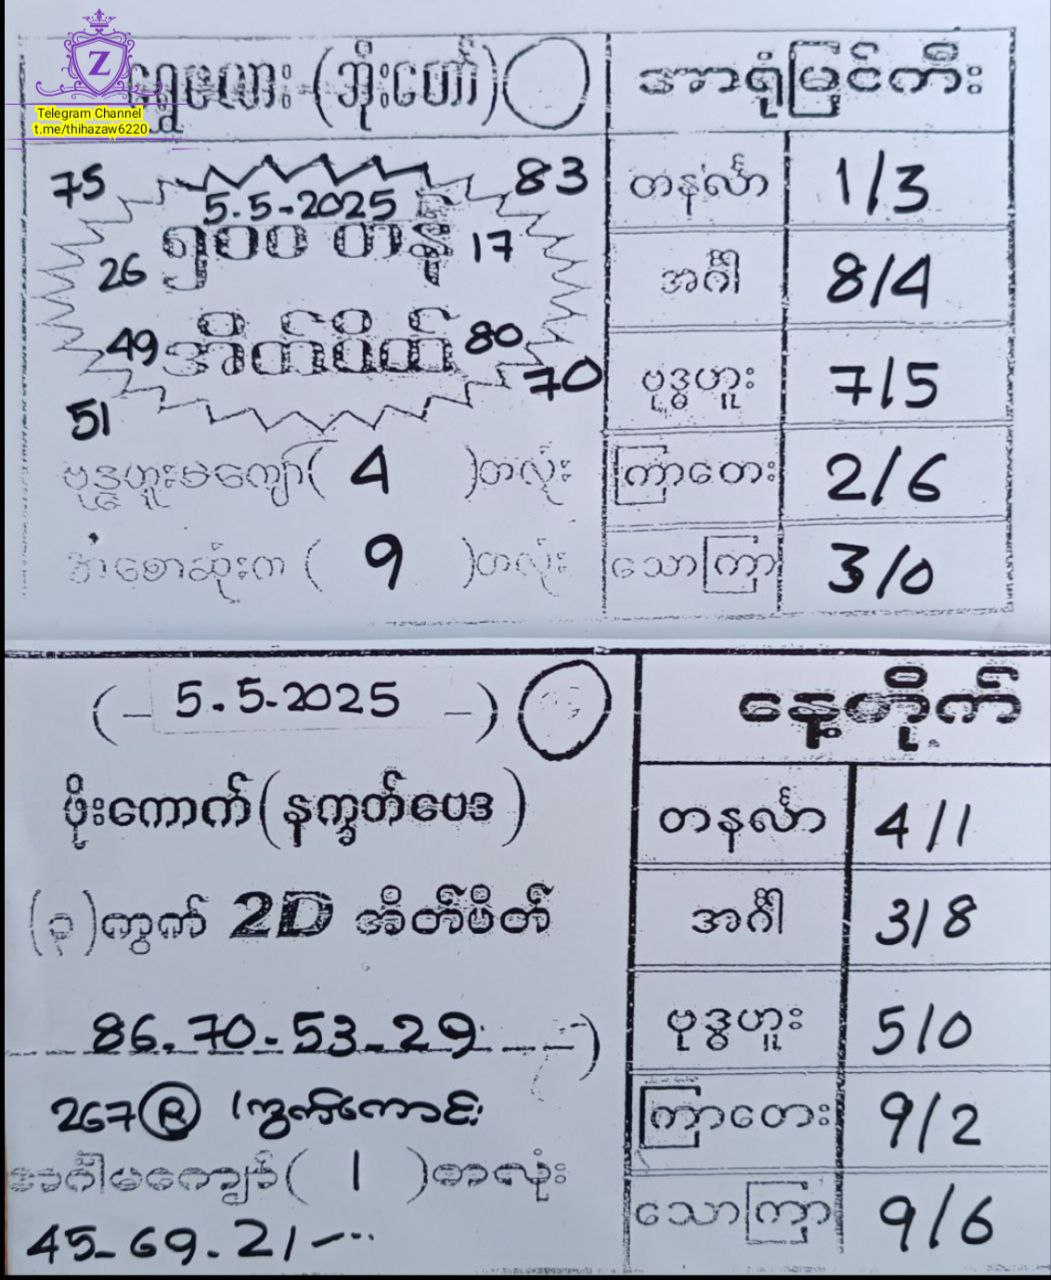 Z
Telegram Channel
t.me/thihazaw6220
ရွှေလေး (ဘိုးတော်)
75 83
5.5-2025
၅၀၀ တန်
26 17
အိတ်ပိတ်
49 80
70
51
ဗုဒ္ဓဟူးမကျော်( 4 )တလုံး
အစောဆုံးက ( 9 )တလုံး
အာရုံမြင်ကီး
တနင်္လာ 1/3
အင်္ဂါ 8/4
ဗုဒ္ဓဟူး 7/5
ကြာတေး 2/6
သောကြာ 3/0
(- 5.5-2025 -)
ဖိုးကောက်(နက္ခတ်ဗေဒ)
(၃)ကွက် 2D အိတ်ပိတ်
86.70-53-29 )
267 Ⓡ ကွက်ကောင်း
အင်္ဂါမကျော်( 1 )တလုံး
45-69.21-...
နေ့တိုက်
တနင်္လာ 4/1
အင်္ဂါ 3/8
ဗုဒ္ဓဟူး 5/0
ကြာတေး 9/2
သောကြာ 9/6